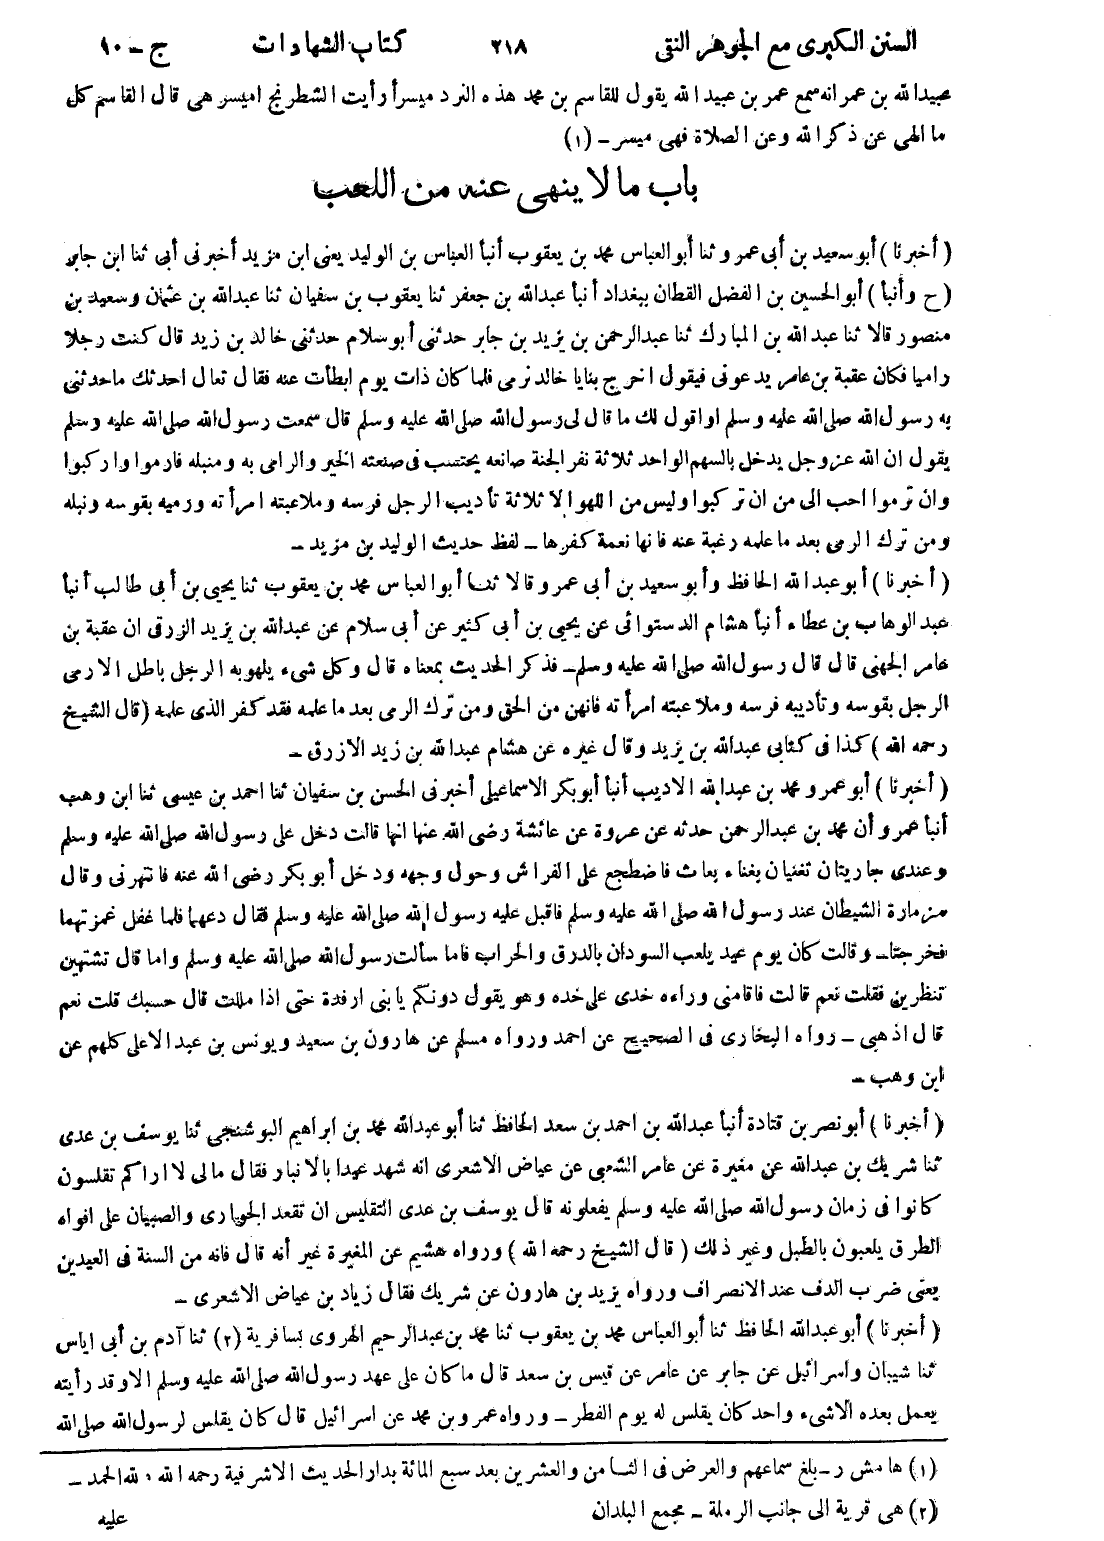 السنن الكبرى مع الجوهر النقى ٢١٨ كتاب الشهادات ج - ١٠
عبيدالله بن عمر انه سمع عمر بن عبيد الله يقول للقاسم بن محمد هذه النرد ميسر أرأيت الشطرنج اميسر هى قال القاسم كل
ما الهى عن ذكر الله وعن الصلاة فهى ميسر - (١)
باب ما لا ينهى عنه من اللعب
( أخبرنا ) أبو سعيد بن أبى عمرو ثنا أبو العباس محمد بن يعقوب أنبأ العباس بن الوليد يعنى ابن مزيد أخبرنى أبى ثنا ابن جابر
( ح وأنبأ ) أبو الحسين بن الفضل القطان ببغداد أنبأ عبدالله بن جعفر ثنا يعقوب بن سفيان ثنا عبدالله بن عثمان وسعيد بن
منصور قالا ثنا عبد الله بن المبارك ثنا عبدالرحمن بن يزيد بن جابر حدثنى أبو سلام حدثنى خالد بن زيد قال كنت رجلا
راميا فكان عقبة بن عامر يدعونى فيقول اخرج بنايا خالد نرمى فلما كان ذات يوم ابطأت عنه فقال تعال احدثك ما حدثنى
به رسول الله صلى الله عليه وسلم او اقول لك ما قال لى رسول الله صلى الله عليه وسلم قال سمعت رسول الله صلى الله عليه وسلم
يقول ان الله عز وجل يدخل بالسهم الواحد ثلاثة نفر الجنة صانعه يحتسب فى صنعته الخير والرامى به ومنبله فارموا واركبوا
وان ترموا احب الى من ان تركبوا وليس من اللهو الا ثلاثة تأديب الرجل فرسه وملاعبته امرأته ورميه بقوسه ونبله
ومن ترك الرمى بعد ما علمه رغبة عنه فانها نعمة كفرها - لفظ حديث الوليد بن مزيد -
( أخبرنا ) أبو عبد الله الحافظ وأبو سعيد بن أبى عمرو قالا ثنا أبو العباس محمد بن يعقوب ثنا يحيى بن أبى طالب أنبأ
عبد الوهاب بن عطاء أنبأ هشام الدستوائى عن يحيى بن أبى كثير عن أبى سلام عن عبدالله بن يزيد الزرقى ان عقبة بن
عامر الجهنى قال قال رسول الله صلى الله عليه وسلم - فذكر الحديث بمعناه قال وكل شىء يلهو به الرجل باطل الا رمى
الرجل بقوسه وتأديبه فرسه وملاعبته امرأته فانهن من الحق ومن ترك الرمى بعد ما علمه فقد كفر الذى علمه ( قال الشيخ
رحمه الله ) كذا فى كتابى عبدالله بن يزيد وقال غيره عن هشام عبدالله بن زيد الازرق -
( أخبرنا ) أبو عمرو محمد بن عبدالله الاديب أنبأ أبو بكر الاسماعيلى أخبرنى الحسن بن سفيان ثنا احمد بن عيسى ثنا ابن وهب
أنبأ عمرو أن محمد بن عبدالرحمن حدثه عن عروة عن عائشة رضى الله عنها انها قالت دخل على رسول الله صلى الله عليه وسلم
وعندى جاريتان تغنيان بغناء بعاث فاضطجع على الفراش وحول وجهه ودخل أبو بكر رضى الله عنه فانتهرنى وقال
مزمارة الشيطان عند رسول الله صلى الله عليه وسلم فاقبل عليه رسول الله صلى الله عليه وسلم فقال دعهما فلما غفل غمزتهما
فخرجتا - وقالت كان يوم عيد يلعب السودان بالدرق والحراب فاما سألت رسول الله صلى الله عليه وسلم واما قال تشتهين
تنظرين فقلت نعم قالت فاقامنى وراءه خدى على خده وهو يقول دونكم يا بنى ارفدة حتى اذا مللت قال حسبك قلت نعم
قال اذهبى - رواه البخارى فى الصحيح عن احمد ورواه مسلم عن هارون بن سعيد ويونس بن عبد الاعلى كلهم عن
ابن وهب -
( أخبرنا ) أبو نصر بن قتادة أنبأ عبدالله بن احمد بن سعد الحافظ ثنا أبو عبدالله محمد بن ابراهيم البوشنجى ثنا يوسف بن عدى
ثنا شريك بن عبدالله عن مغيرة عن عامر الشعبى عن عياض الاشعرى انه شهد عيدا بالانبار فقال مالى لا اراكم تقلسون
كانوا فى زمان رسول الله صلى الله عليه وسلم يفعلونه قال يوسف بن عدى التقليس ان تقعد الجوارى والصبيان على افواه
الطرق يلعبون بالطبل وغير ذلك ( قال الشيخ رحمه الله ) ورواه هشيم عن المغيرة غير أنه قال فانه من السنة فى العيدين
يعنى ضرب الدف عند الانصراف ورواه يزيد بن هارون عن شريك فقال زياد بن عياض الاشعرى -
( أخبرنا ) أبو عبدالله الحافظ ثنا أبو العباس محمد بن يعقوب ثنا محمد بن عبدالرحيم الهروى بسافرية (٢) ثنا آدم بن أبى اياس
ثنا شيبان واسرائيل عن جابر عن عامر عن قيس بن سعد قال ما كان على عهد رسول الله صلى الله عليه وسلم الا وقد رأيته
يعمل بعده الا شىء واحد كان يقلس له يوم الفطر - ورواه عمرو بن محمد عن اسرائيل قال كان يقلس لرسول الله صلى الله
(١) هامش ر - بلغ سماعهم والعرض فى الثامن والعشرين بعد سبع المائة بدار الحديث الاشرفية رحمه الله ولله الحمد -
(٢) هى قرية الى جانب الرملة - مجمع البلدان
عليه